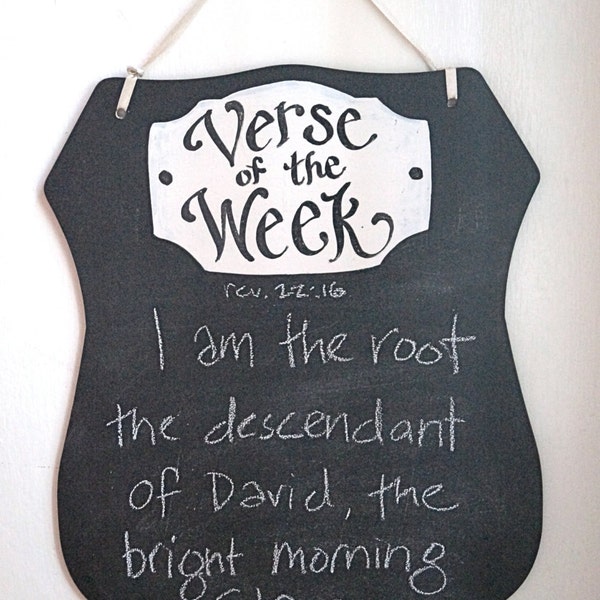 Verse
of the
Week
rev. 22:16
I am the root
the descendant
of David, the
bright morning